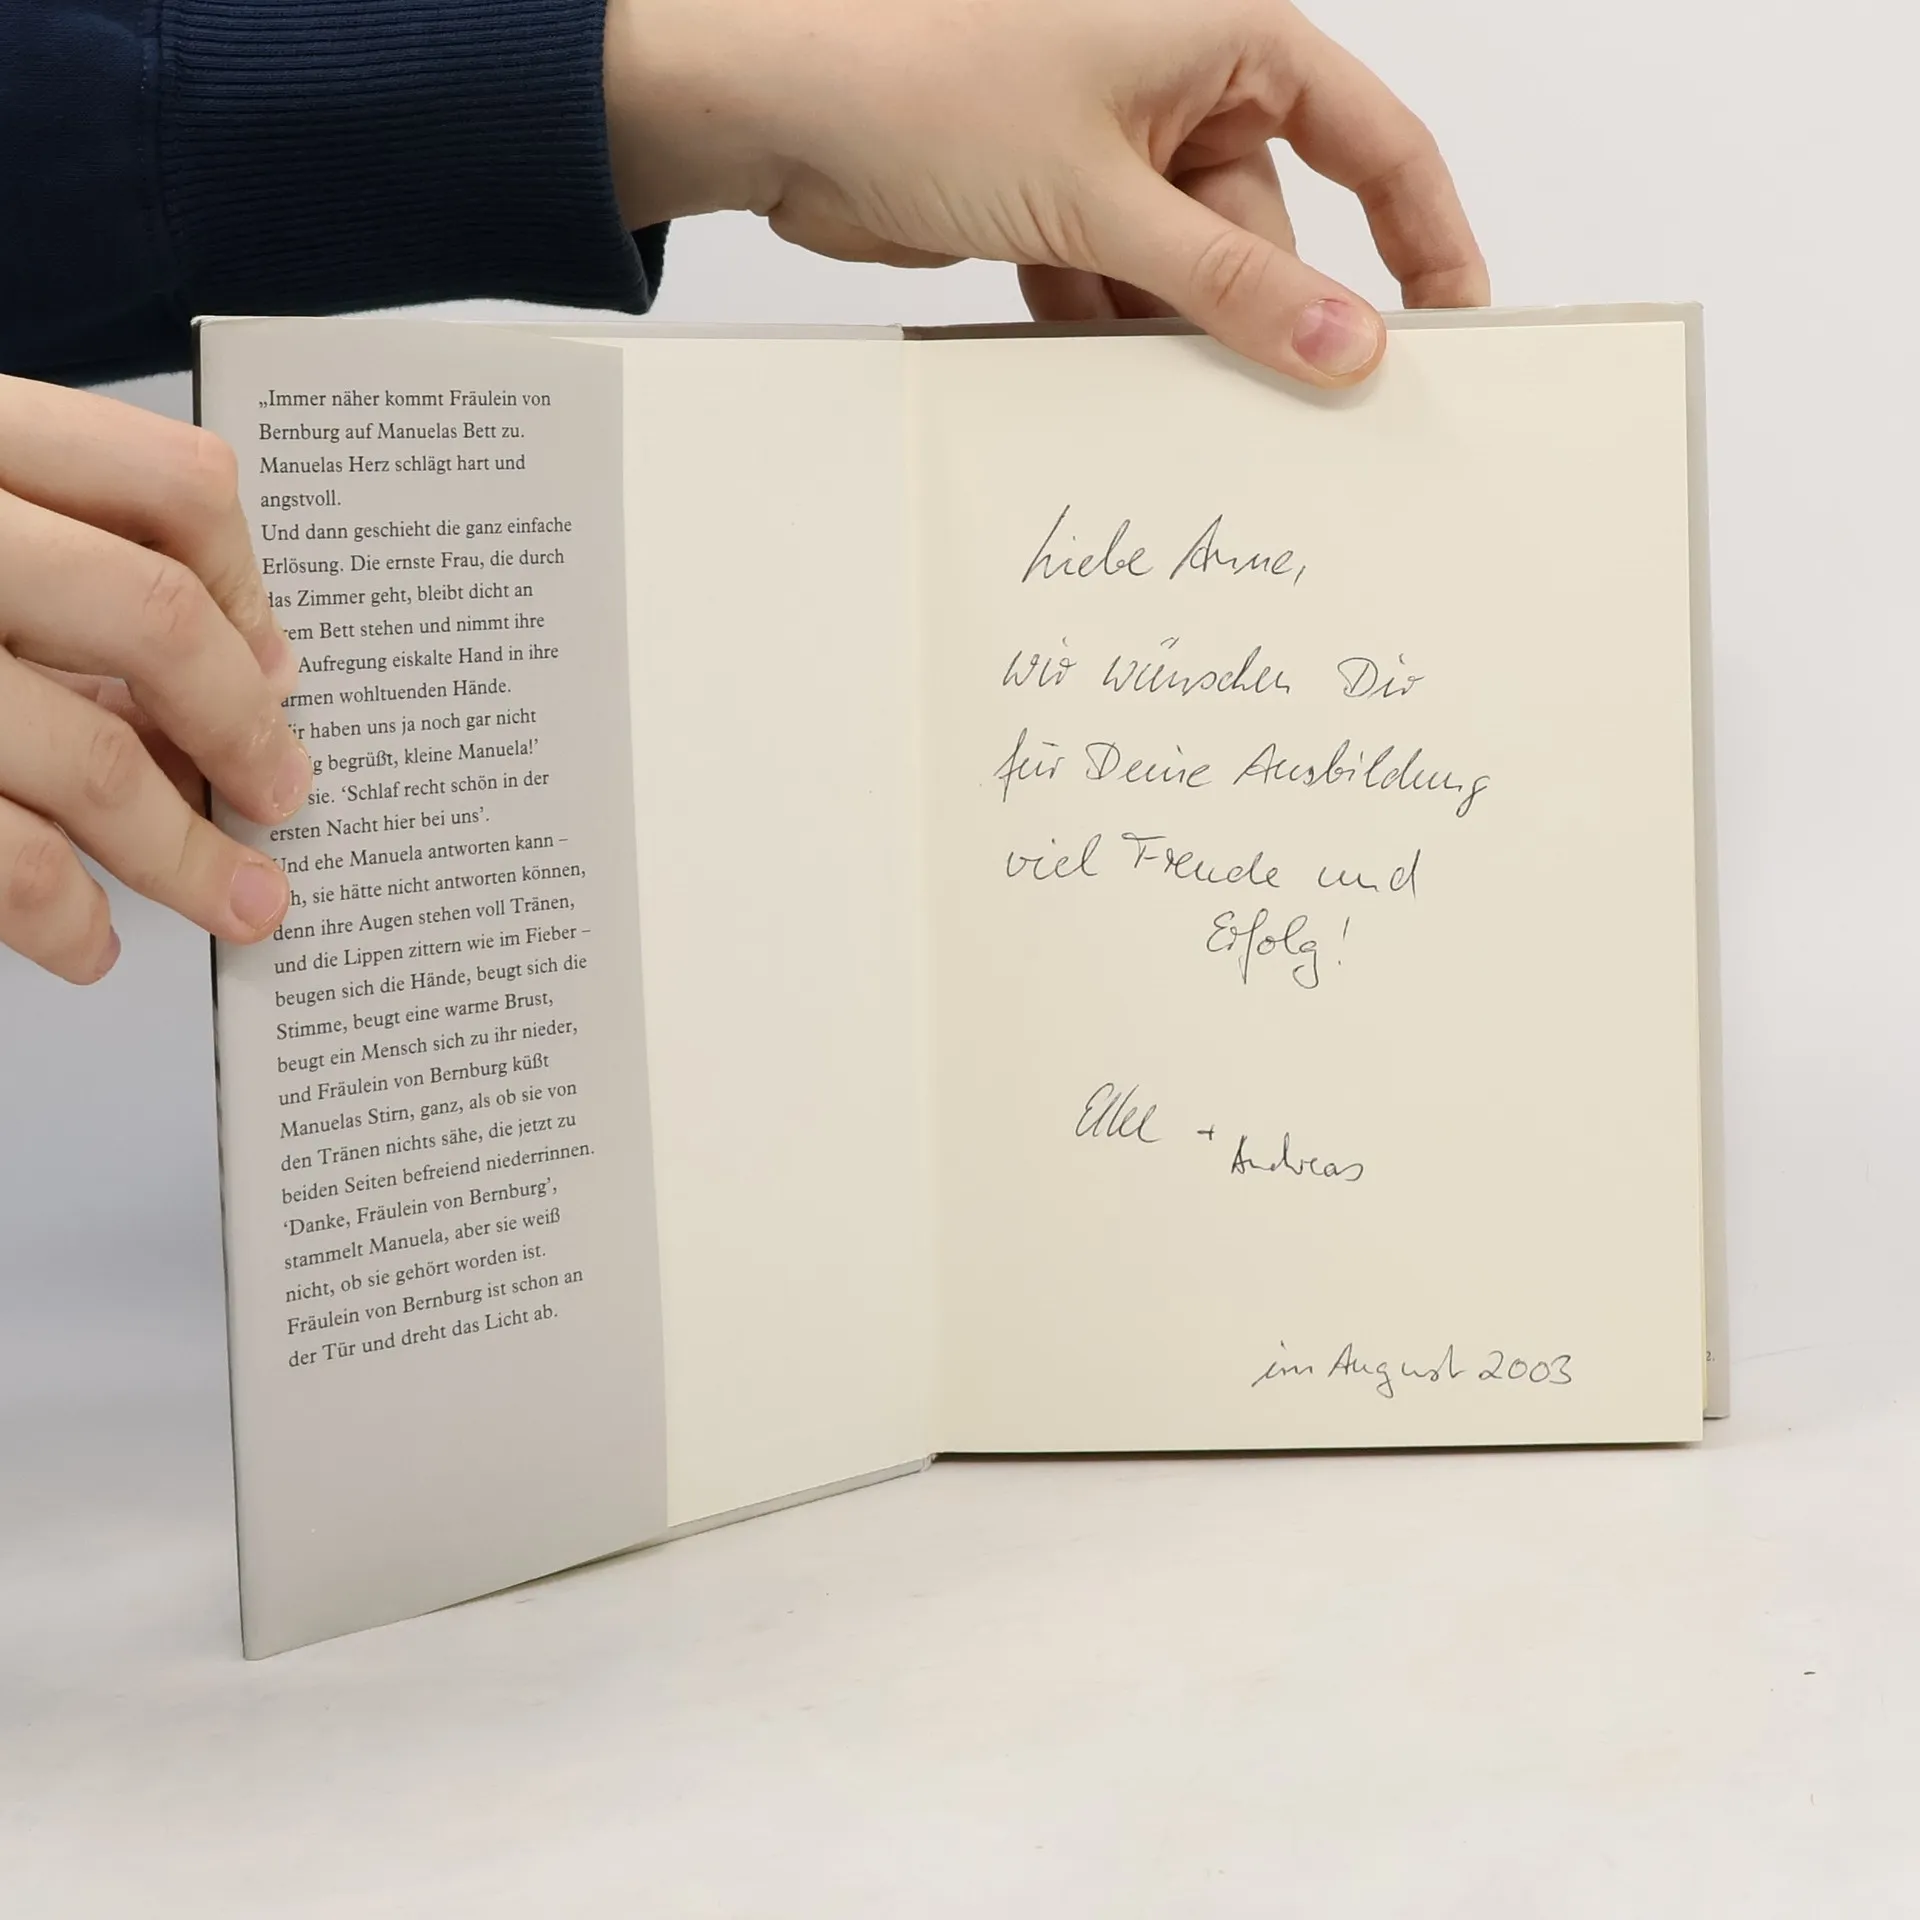 „Immer näher kommt Fräulein von
Bernburg auf Manuelas Bett zu.
Manuelas Herz schlägt hart und
angstvoll.
Und dann geschieht die ganz einfache
Erlösung. Die ernste Frau, die durch
das Zimmer geht, bleibt dicht an
rem Bett stehen und nimmt ihre
Aufregung eiskalte Hand in ihre
armen wohltuenden Hände.
ir haben uns ja noch gar nicht
ig begrüßt, kleine Manuela!’
sie. ‘Schlaf recht schön in der
ersten Nacht hier bei uns’.
Und ehe Manuela antworten kann –
h, sie hätte nicht antworten können,
denn ihre Augen stehen voll Tränen,
und die Lippen zittern wie im Fieber –
beugen sich die Hände, beugt sich die
Stimme, beugt eine warme Brust,
beugt ein Mensch sich zu ihr nieder,
und Fräulein von Bernburg küßt
Manuelas Stirn, ganz, als ob sie von
den Tränen nichts sähe, die jetzt zu
beiden Seiten befreiend niederrinnen.
‘Danke, Fräulein von Bernburg’,
stammelt Manuela, aber sie weiß
nicht, ob sie gehört worden ist.
Fräulein von Bernburg ist schon an
der Tür und dreht das Licht ab.
Liebe Anne,
wir wünschen Dir
für Deine Ausbildung
viel Freude und
Erfolg!
+ Andreas
im August 2003
2.